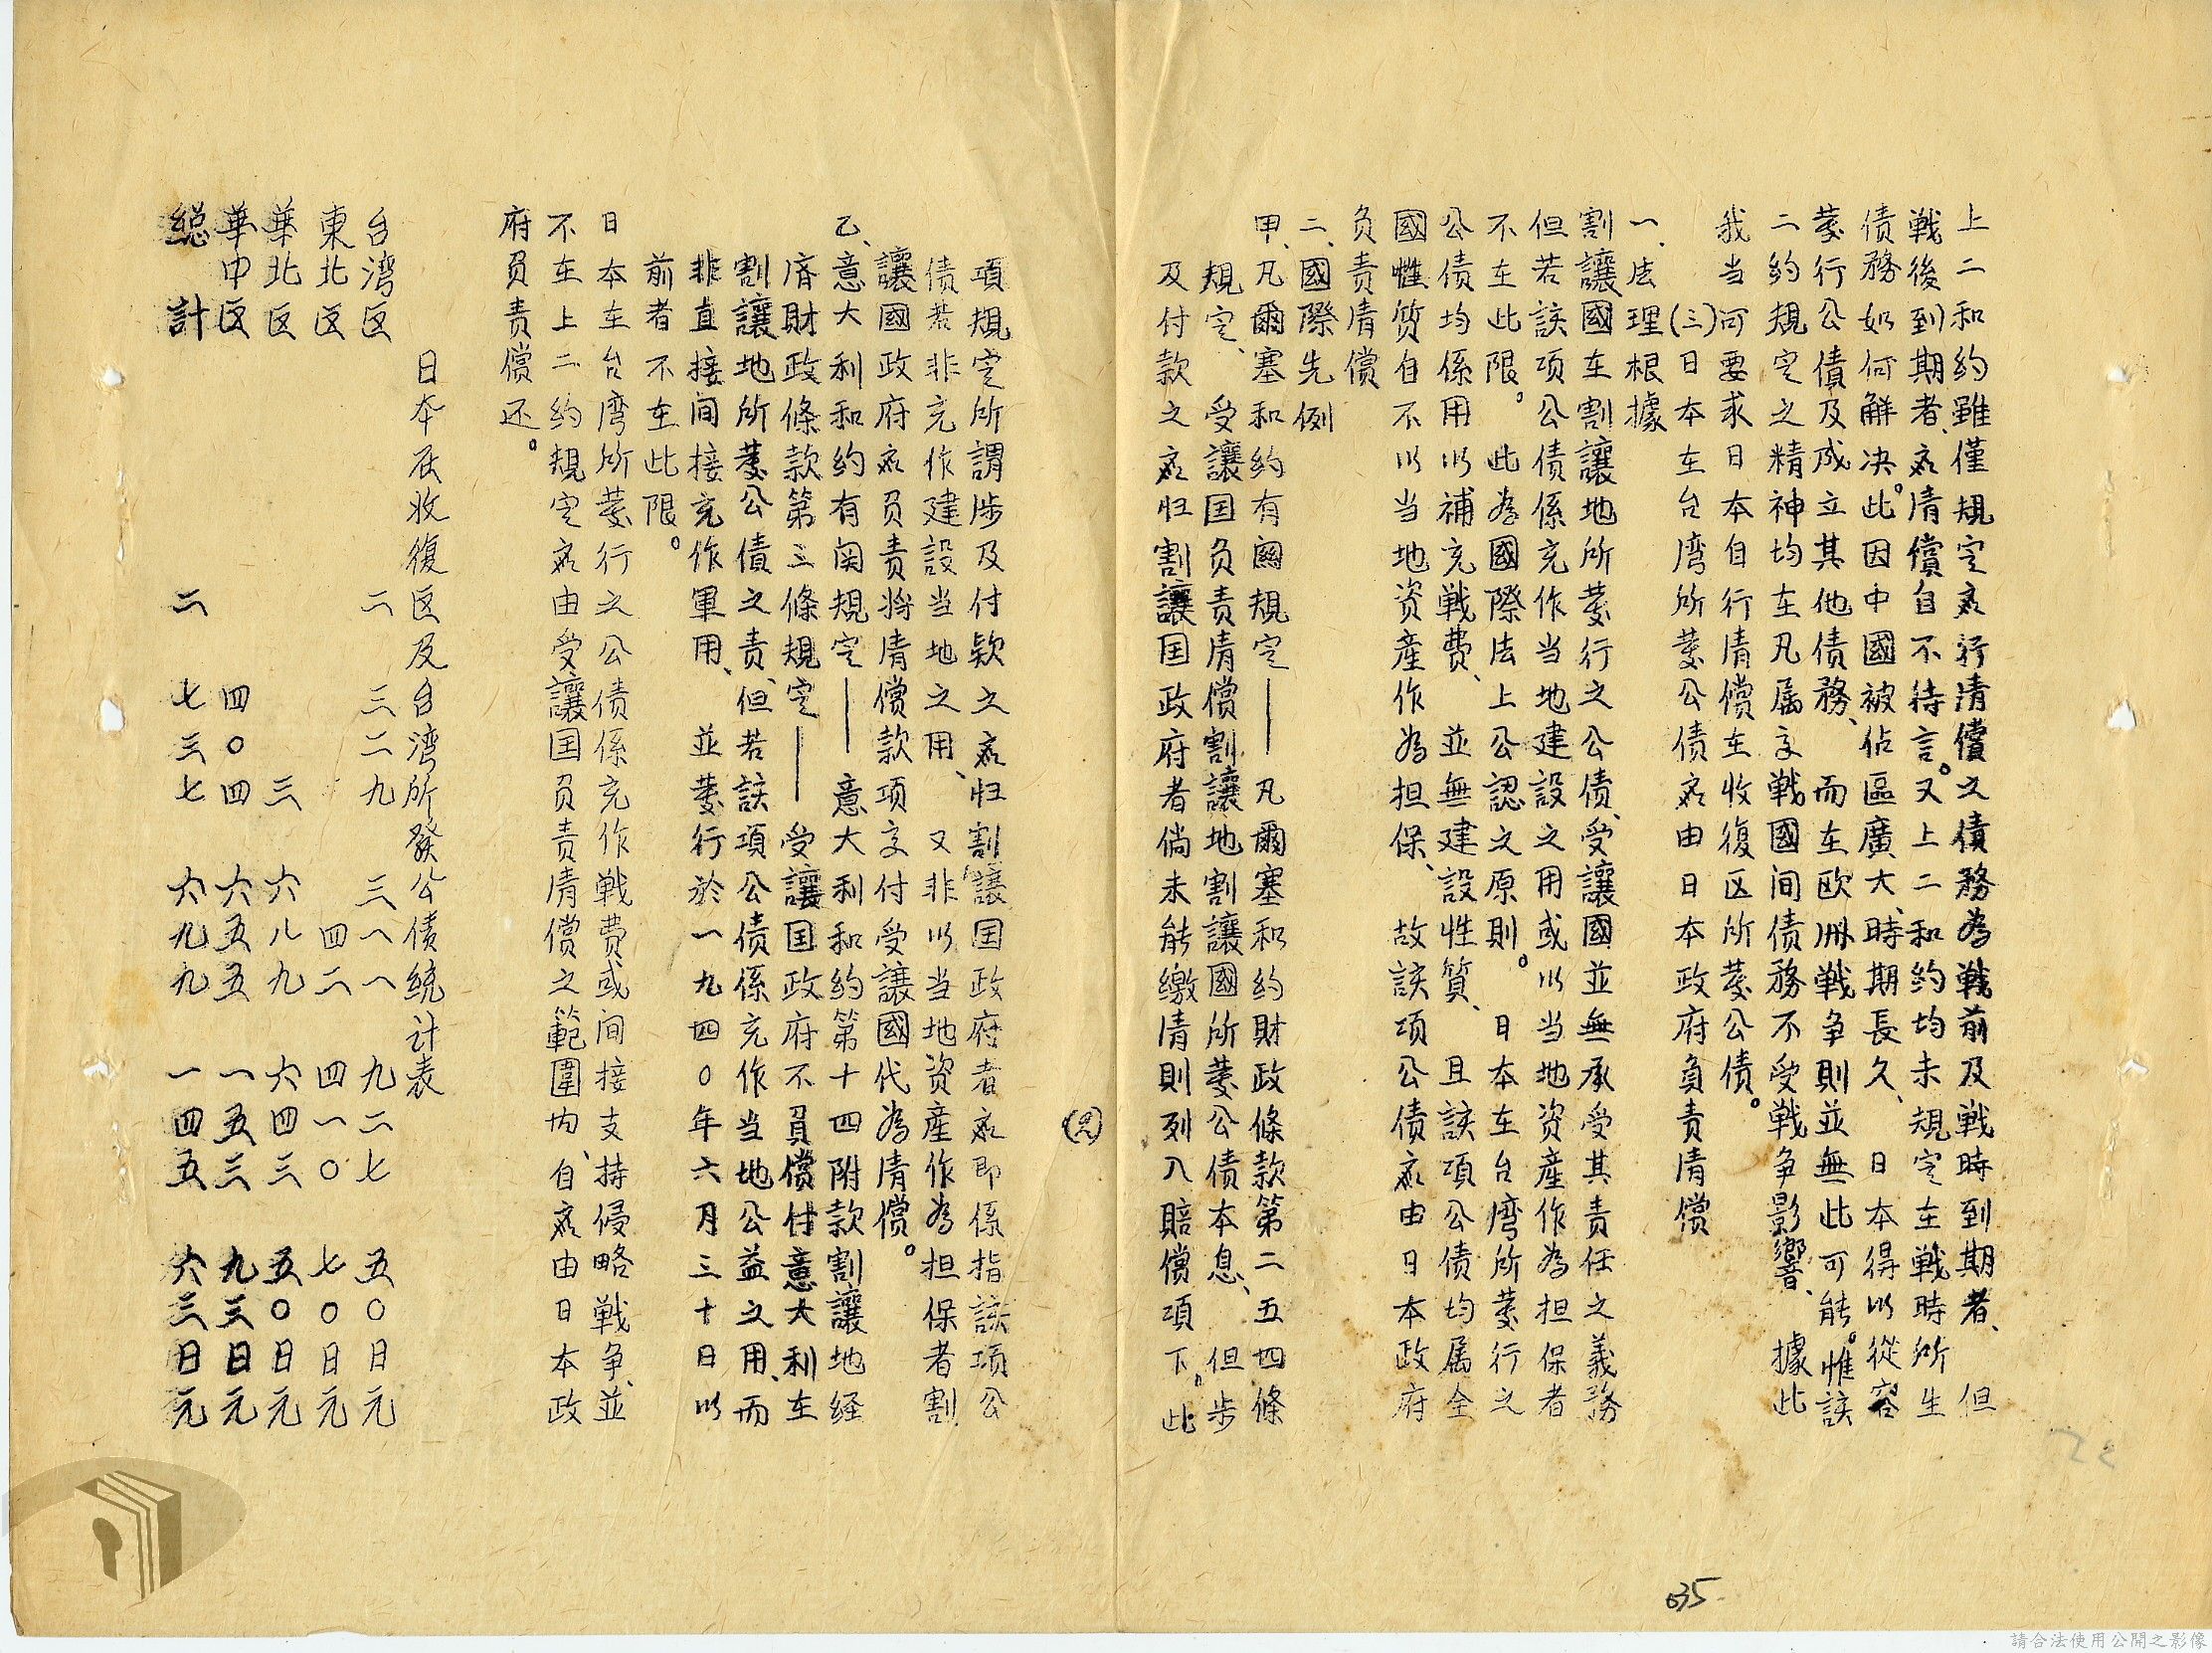 上二和约雖僅規定应行清償之债務為戰前及戦時到期者、但
戦後到期者、应清償自不待言。又上二和約均未規定在戦時所生
债務如何解决。此因中國被佔區廣大、時期長久、日本得以從容
發行公债及成立其他债務、而在欧洲戦争則並無此可能。惟該
二约規定之精神均在凡属交戦國间债務不受戦争影響、據此
我当可要求日本自行清償在收復区所發公债。
(三)日本在台湾所發公债应由日本政府負責清償
一、法理根據
割讓國在割讓地所發行之公债、受讓國並無承受其責任之義務
但若該項公债係充作当地建設之用或以当地資產作為担保者
不在此限。此為國際法上公認之原則。日本在台湾所發行之
公债均係用以補充戦費、並無建設性質、且該項公债均属全
國性质自不以当地资產作為担保、故該項公债应由日本政府
负责清偿
二、國際先例
甲、凡爾塞和約有関規定——凡爾塞和約財政條款第二五四條
規定、受讓囯负责清償割讓地割讓國所發公债本息、但步
及付款之应归割讓囯政府者倘未能缴清則列入賠償項下。此
(2)
項規定所謂涉及付欵之应归割讓囯政府者应即係指該項公
债若非充作建設当地之用、又非以当地資產作為担保者割
讓國政府应负责將清償款項交付受讓國代為清償。
乙、意大利和約有関規定——意大利和約第十四附款割讓地经
濟財政條款第三條規定——受讓囯政府不員償付意大利在
割讓地所發公债之责、但若該項公债係充作当地公益之用、而
非直接间接充作軍用、並發行於一九四〇年六月三十日以
前者不在此限。
日本在台湾所發行之公债係充作戦費或间接支持侵略戦争、並
不在上二约規定应由受讓囯负责清償之範圍内、自应由日本政
府负责償还。
日本在收復区及台湾所發公债統计表
台湾区　二　三二九　三八八　九二七　五〇日元
東北区　四二　四一〇　七〇日元
華北区　三　六八九　六四三　五〇日元
華中区　四〇四　六五五　一五三　九三日元
總計　二　七三七　六九九　一四五　六三日元
635
請合法使用公開之影像